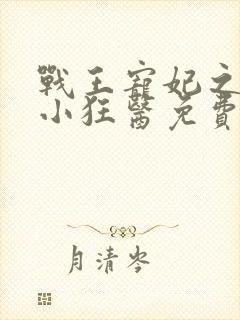 戰王寵妃之
小狂醫免費
月清岑